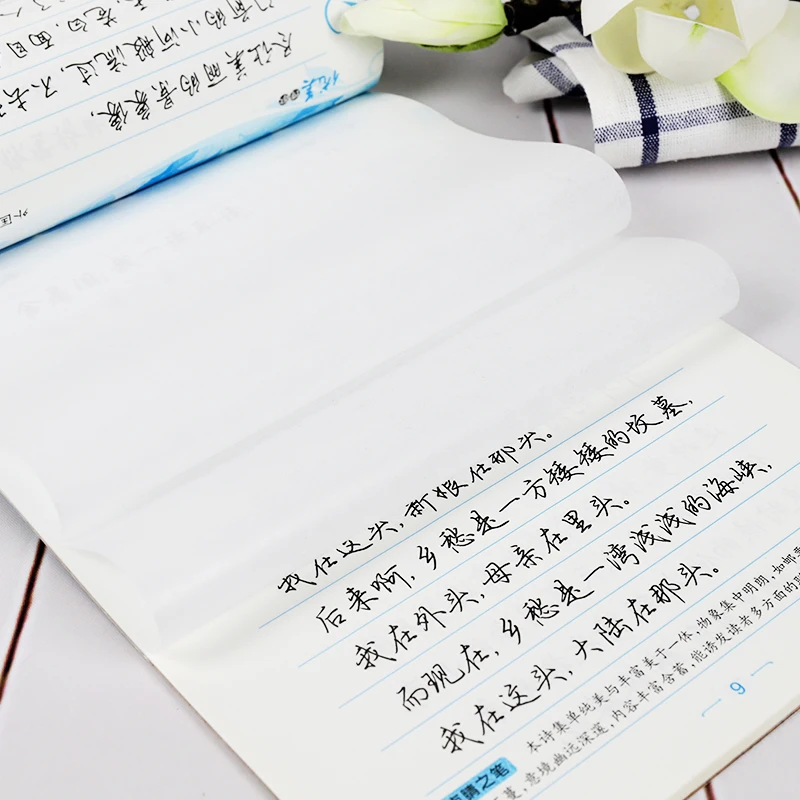 让美丽的景象像，
门前的小河般流过，不去
我在这头，新娘在那头。
后来啊，乡愁是一方矮矮的坟墓，
我在外头，母亲在里头。
而现在，乡愁是一湾浅浅的海峡，
我在这头，大陆在那头。
睛之笔
本诗集单纯美与丰富美于一体，物象集中明朗，如邮票
蔓，意境幽远深邃，内容丰富含蓄，能诱发读者多方面的
9